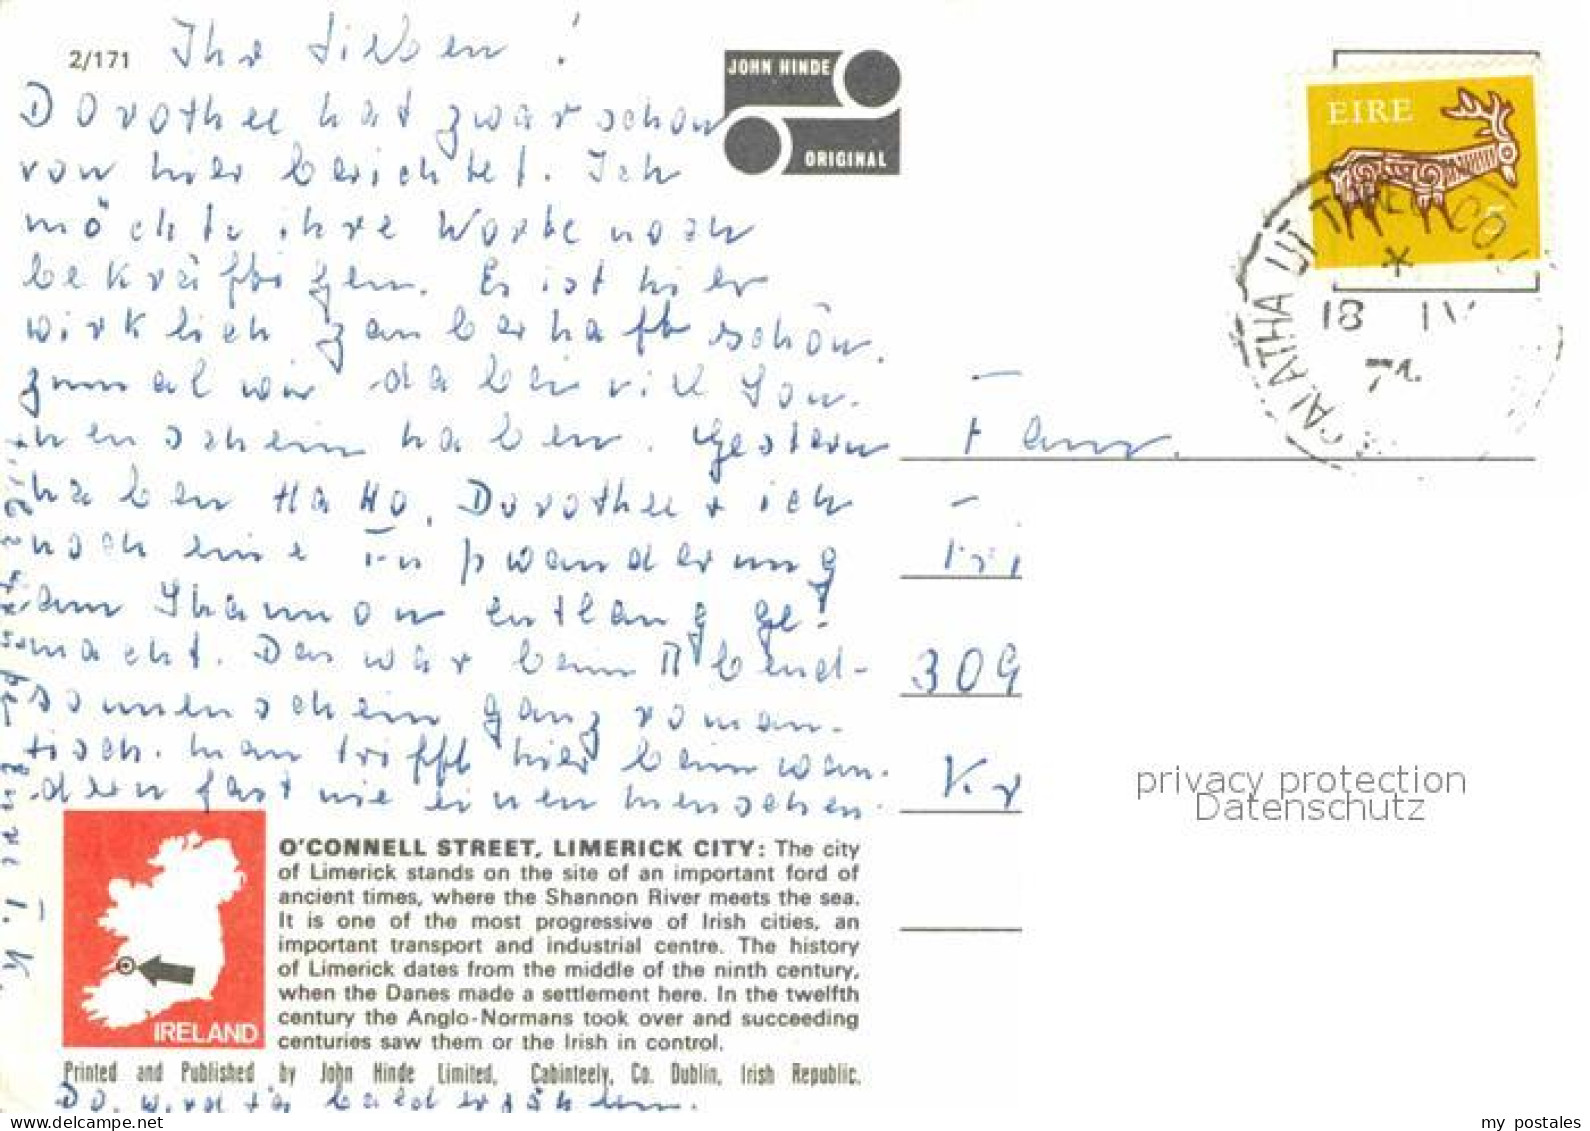 2/171
Ihr Lieben!
JOHN HINDE
ORIGINAL
EIRE
Dorothee hat zwar schon
von hier berichtet. Ich
möchte ihre Worte noch
bekräftigen. Es ist hier
wirklich zauberhaft schön.
zumal wir dabei viel Son-
nenschein haben. Gestern
haben HaHo, Dorothee + ich
noch eine wanderung
am Shannon entlang ge-
macht. Das war beim Abend-
sonnenschein ganz roman-
tisch. Man trifft hier beim wan-
dern fast nie einen Menschen.
Fam.
309
Kr
18 IV
privacy protection
Datenschutz
O'CONNELL STREET, LIMERICK CITY: The city
of Limerick stands on the site of an important ford of
ancient times, where the Shannon River meets the sea.
It is one of the most progressive of Irish cities, an
important transport and industrial centre. The history
of Limerick dates from the middle of the ninth century,
when the Danes made a settlement here. In the twelfth
century the Anglo-Normans took over and succeeding
centuries saw them or the Irish in control.
IRELAND
Printed and Published by John Hinde Limited, Cabinteely, Co. Dublin, Irish Republic.
Do. wird es bald erzählen.
www.delcampe.net
my postales